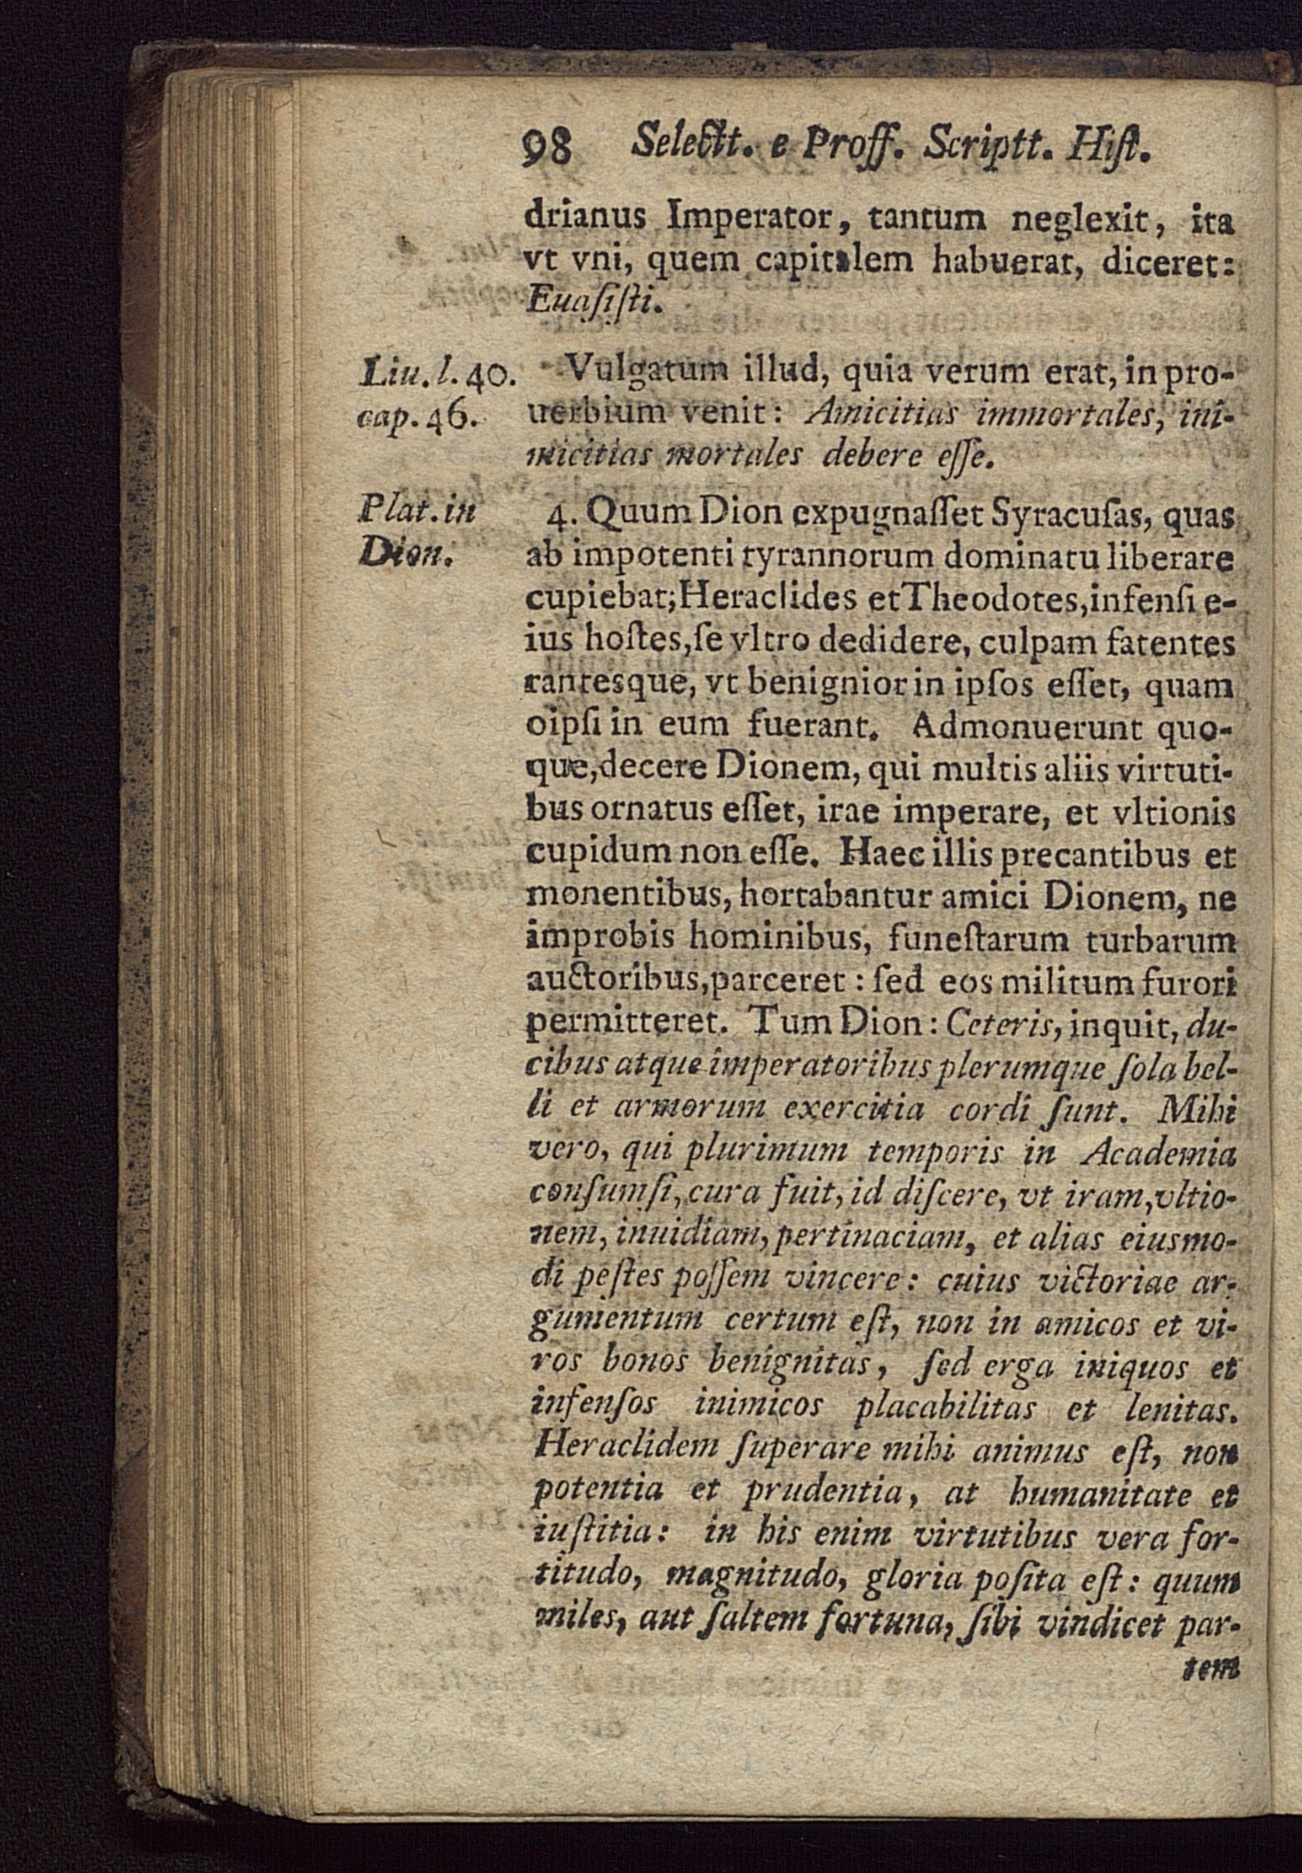 98 Selectt. e Proff. Scriptt. Hiſt.
drianus Imperator, tantum neglexit, ita
vt vni, quem capitalem habuerat, diceret:
Euaſiſti.
Liu. l. 40.
cap. 46.
Vulgatum illud, quia verum erat, in pro-
uerbium venit: Amicitias immortales, ini-
micitias mortales debere eſſe.
Plat. in
Dion.
4. Quum Dion expugnaſſet Syracuſas, quas
ab impotenti tyrannorum dominatu liberare
cupiebat; Heraclides et Theodotes, infenſi e-
ius hoſtes, ſe vltro dedidere, culpam fatentes
rantesque, vt benignior in ipſos eſſet, quam
oipſi in eum fuerant. Admonuerunt quo-
que, decere Dionem, qui multis aliis virtuti-
bus ornatus eſſet, irae imperare, et vltionis
cupidum non eſſe. Haec illis precantibus et
monentibus, hortabantur amici Dionem, ne
improbis hominibus, funeſtarum turbarum
auctoribus, parceret: ſed eos militum furori
permitteret. Tum Dion: Ceteris, inquit, du-
cibus atque imperatoribus plerumque ſola bel-
li et armorum exercitia cordi ſunt. Mihi
vero, qui plurimum temporis in Academia
conſumſi, cura fuit, id diſcere, vt iram, vltio-
nem, inuidiam, pertinaciam, et alias eiusmo-
di peſtes poſſem vincere: cuius victoriae ar-
gumentum certum eſt, non in amicos et vi-
ros bonos benignitas, ſed erga iniquos et
infenſos inimicos placabilitas et lenitas.
Heraclidem ſuperare mihi animus eſt, non
potentia et prudentia, at humanitate et
iuſtitia: in his enim virtutibus vera for-
titudo, magnitudo, gloria poſita eſt: quum
miles, aut ſaltem fortuna, ſibi vindicet par-
tem